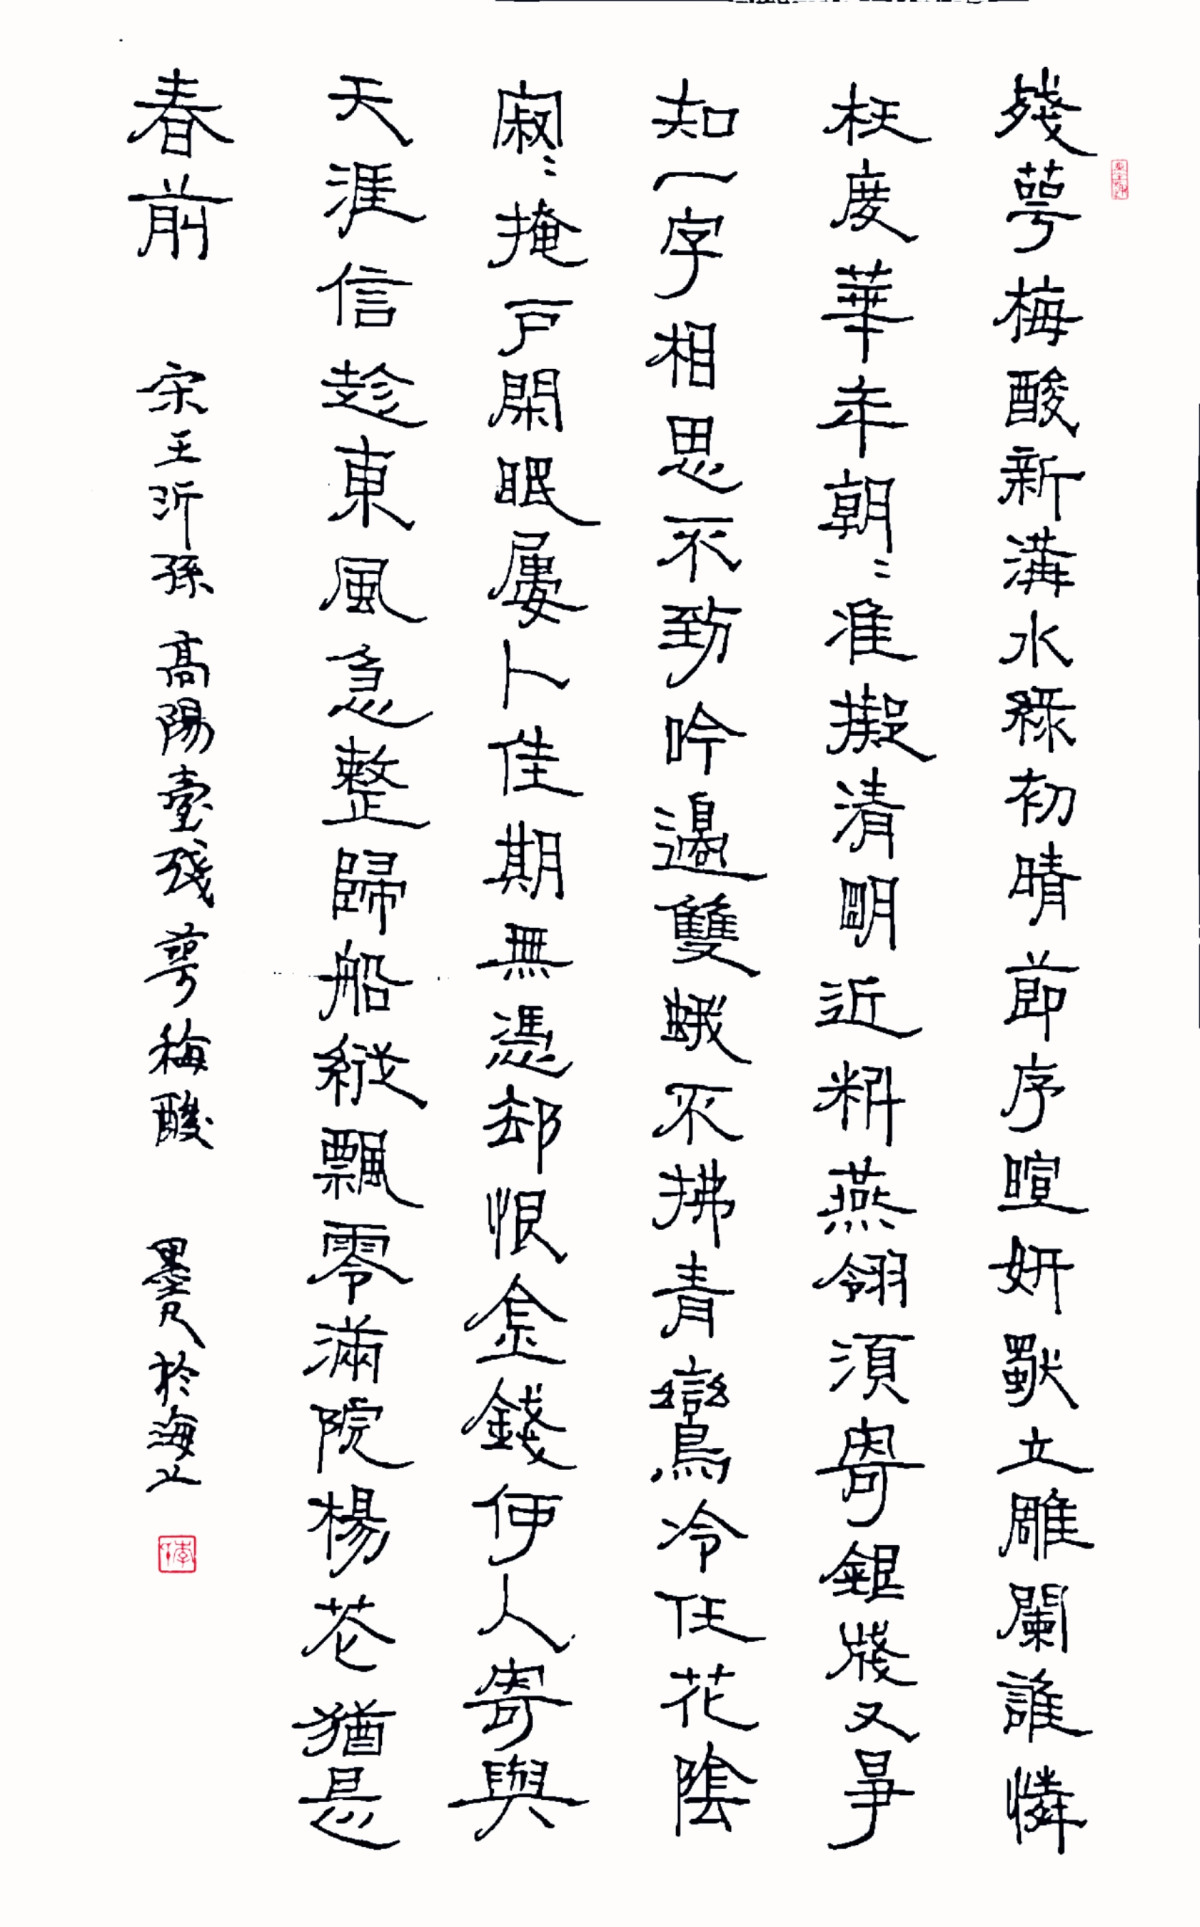 殘萼梅酸新溝水綠初晴節序暄妍獸立雕闌誰憐
枉度華年朝〻准擬清明近料燕翎須寄銀牋又爭
知一字相思不到吟邊雙蛾不拂青鸞冷任花陰
寂〻掩戶閑眠屢卜佳期無憑却恨金錢何人寄與
天涯信趁東風急整歸船縱飄零滿院楊花猶是
春前 宋王沂孫高陽臺殘萼梅酸 墨尺於海上